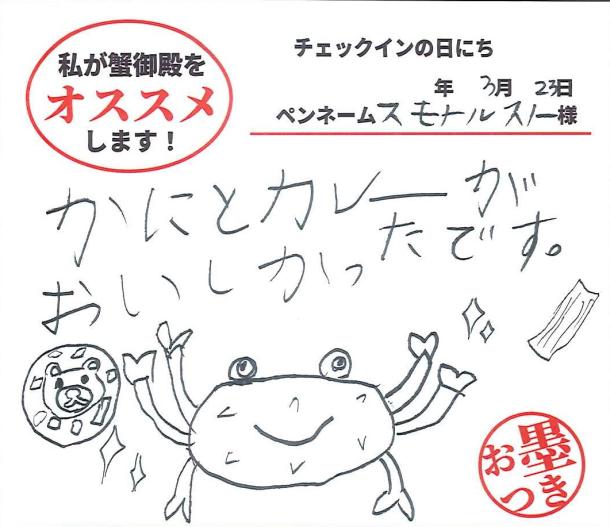 私が蟹御殿を
オススメ
します！
チェックインの日にち
年 3月 23日
ペンネームスモトルスノー様
かにとカレーが
おいしかったです。
お墨
つき